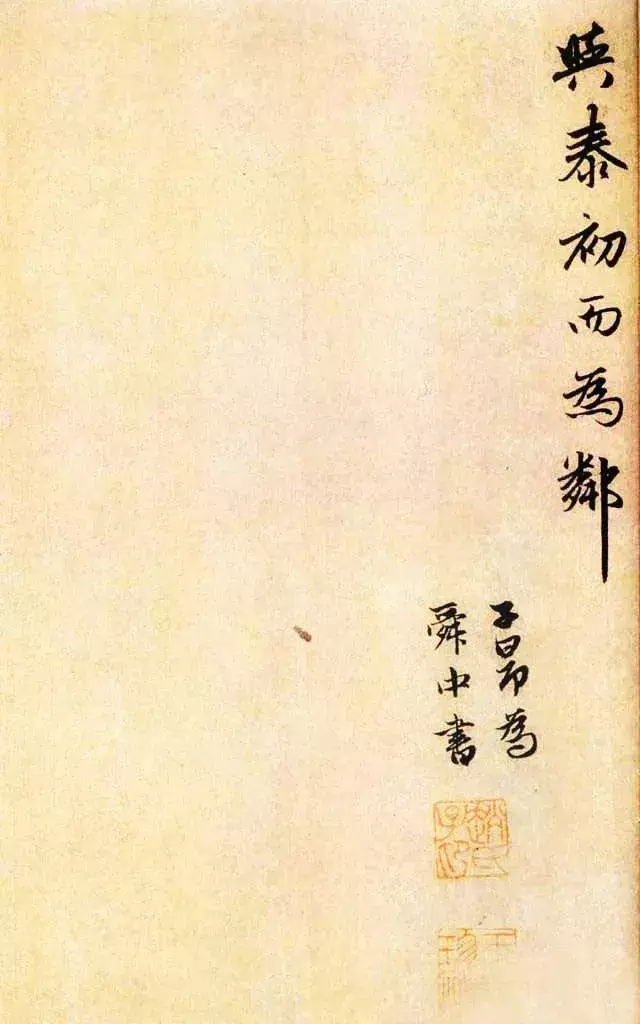 與泰初而為鄰
子昂為
舜中書
趙氏子昂